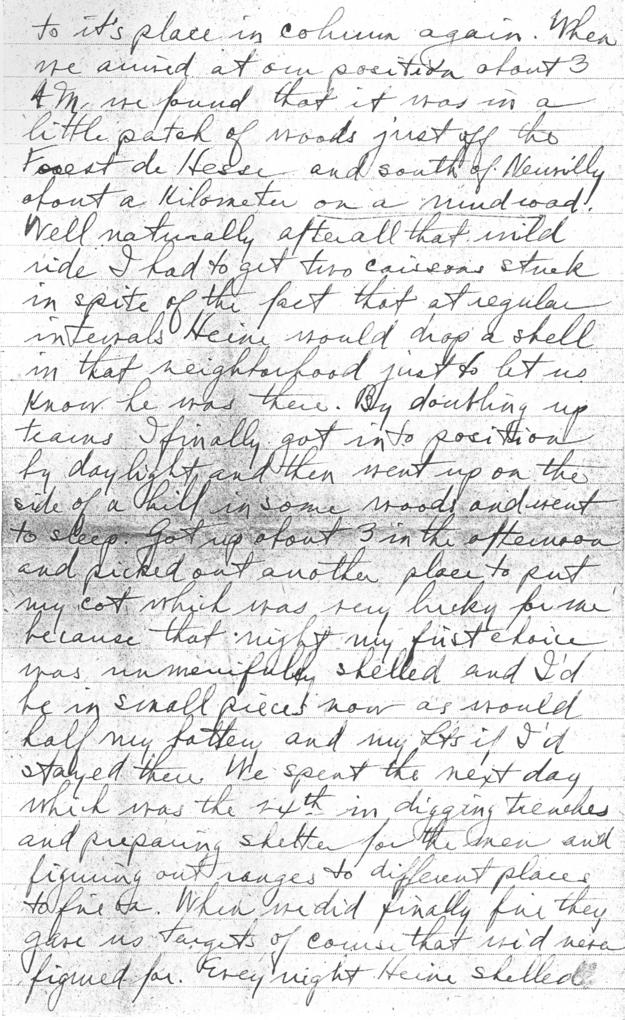 to it's place in column again. When
we arrived at our position about 3
A.M. we found that it was in a
little patch of woods just off the
Forest de Hesse and south of Neuvilly
about a Kilometer on a mud road.
Well naturally after all that wild
ride I had to get two caissons stuck
in spite of the fact that at regular
intervals Heine would drop a shell
in that neighborhood just to let us
know he was there. By doubling up
teams I finally got into position
by daylight and then went up on the
side of a hill in some woods and went
to sleep. Got up about 3 in the afternoon
and picked out another place to put
my cot which was very lucky for me
because that night my first choice
was unmercifully shelled and I'd
be in small pieces now as would
half my battery and my Lts if I'd
stayed there. We spent the next day
which was the 24th in digging trenches
and preparing shelter for the men and
figuring out ranges to different places
to fire to. When we did finally fire they
gave us targets of course that we'd never
figured for. Every night Heine shelled